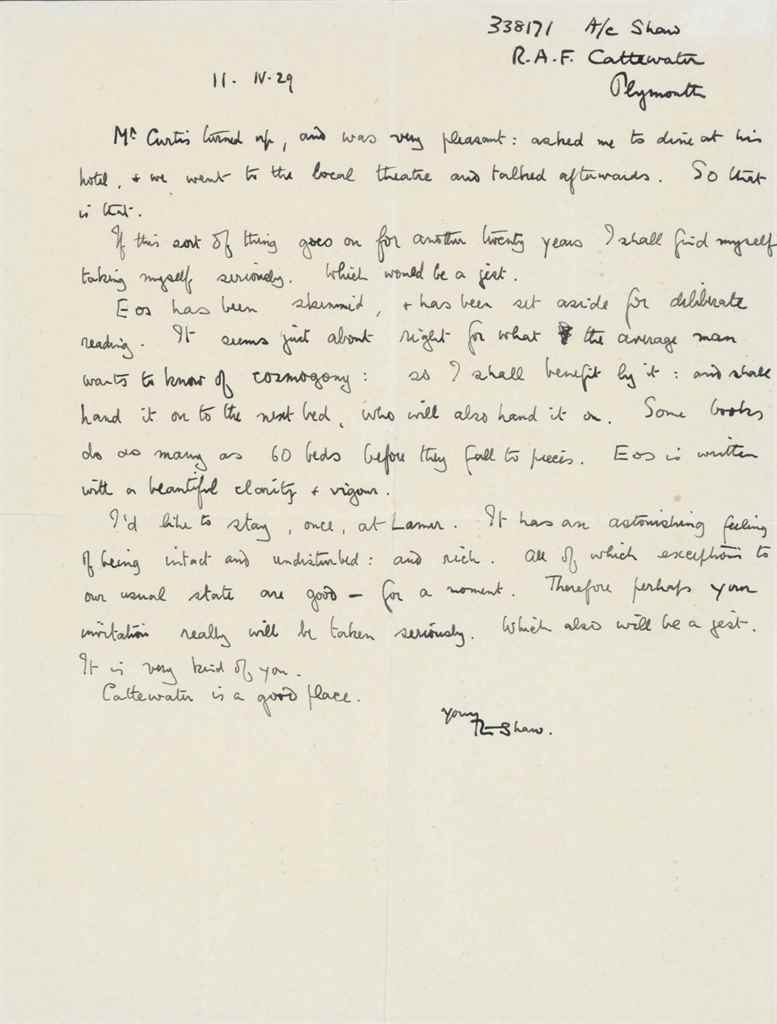 338171 A/c Shaw
R.A.F. Cattewater
Plymouth
11. IV. 29
Mr Curtis turned up, and was very pleasant: asked me to dine at his
hotel, + we went to the local theatre and talked afterwards. So that
is that.
If this sort of thing goes on for another twenty years I shall find myself
taking myself seriously. Which would be a jest.
Eos has been skimmed, + has been set aside for deliberate
reading. It seems just about right for what the average man
wants to know of cosmogony: so I shall benefit by it: and shall
hand it on to the next bed, who will also hand it on. Some books
do as many as 60 beds before they fall to pieces. Eos is written
with a beautiful clarity + vigour.
I'd like to stay, once, at Lamer. It has an astonishing feeling
of being intact and undisturbed: and rich. All of which exceptions to
our usual state are good — for a moment. Therefore perhaps your
invitation really will be taken seriously. Which also will be a jest.
It is very kind of you.
Cattewater is a good place.
Yours
TE Shaw.